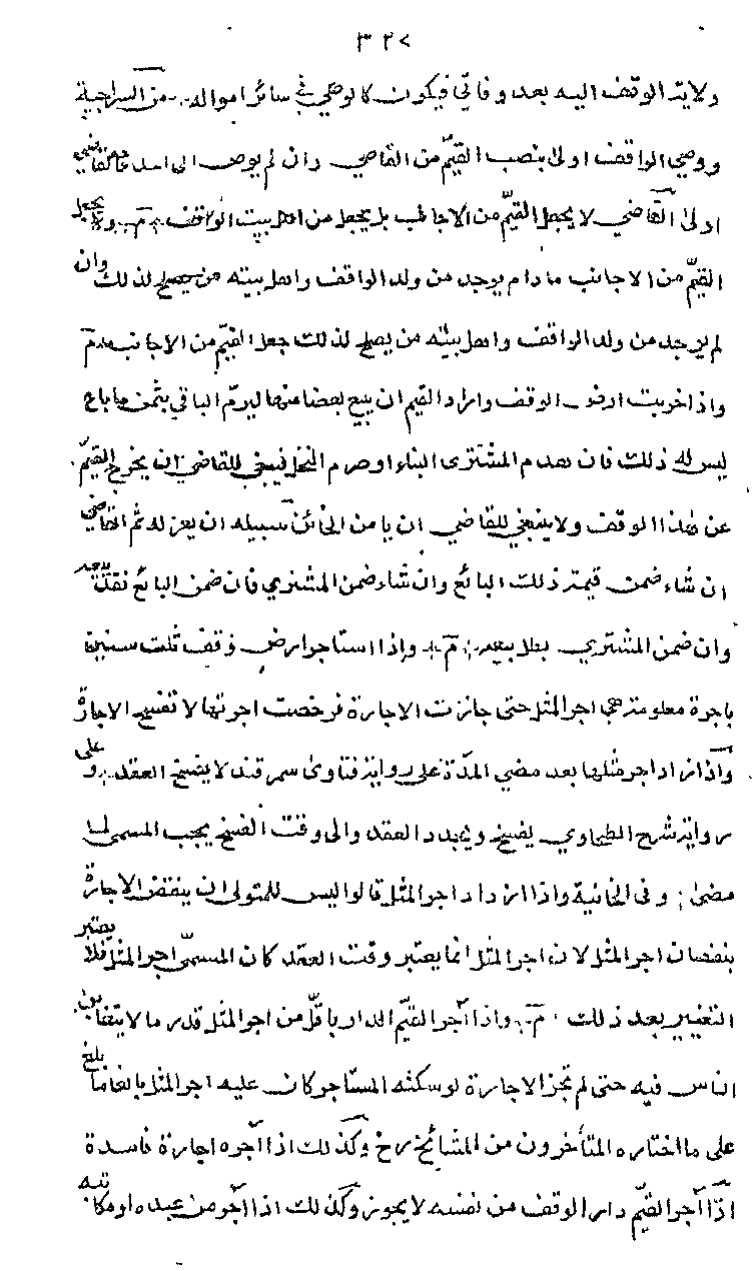 ٣٢٧
ولاية الوقف اليه بعد وفاتي فيكون كالوصي في سائر امواله من السراجية
ووصي الواقف اولى بنصب القيّم من القاضي وان لم يوص الى احد فالقاضي
اولى القاضي لا يجعل القيّم من الاجانب بل يجعل من اهل بيت الواقف م ولا يجعل
القيّم من الاجانب ما دام يوجد من ولد الواقف واهل بيته من يصلح لذلك وان
لم يوجد من ولد الواقف واهل بيته من يصلح لذلك جعل القيّم من الاجانب م
واذا خربت ارض الوقف واراد القيم ان يبيع بعضا منها ليرمّ الباقي بثمن ما باع
ليس له ذلك فان هدم المشترى البناء او صرم النخل فينبغي للقاضي ان يخرج القيّم
عن هذا الوقف ولا ينبغي للقاضي ان يا من الخائن سبيله ان يعزله ثم القاضي
ان شاء ضمن قيمة ذلك البائع وان شاء ضمن المشتري فان ضمن البائع نفذ بيعه
وان ضمن المشتري بطل بيعه م واذا استاجر ارض وقف ثلث سنين
باجرة معلومة هي اجر المثل حتى جازت الاجارة فرخصت اجرتها لا تفسخ الاجارة
واذا زاد اجر مثلها بعد مضي المدّة على رواية فتاوى سمرقند لا يفسخ العقد وعلى
رواية شرح الطحاوي يفسخ ويجدد العقد والى وقت الفسخ يجب المسمى لما
مضى وفى الخانية واذا ازداد اجر المثل قالوا ليس للمتولى ان ينقض الاجارة
بنقصان اجر المثل لان اجر المثل انما يعتبر وقت العقد كان المسمّى اجر المثل فلا يعتبر
التغيير بعد ذلك م واذا آجر القيّم الدار باقلّ من اجر المثل قدر ما لا يتغابن
الناس فيه حتى لم تجز الاجارة لو سكنه المستاجر كان عليه اجر المثل بالغا ما بلغ
على ما اختاره المتأخرون من المشائخ رح وكذلك اذا آجره اجارة فاسدة
اذا آجر القيّم دار الوقف من نفسه لا يجوز وكذلك اذا آجر من عبده او مكاتبه